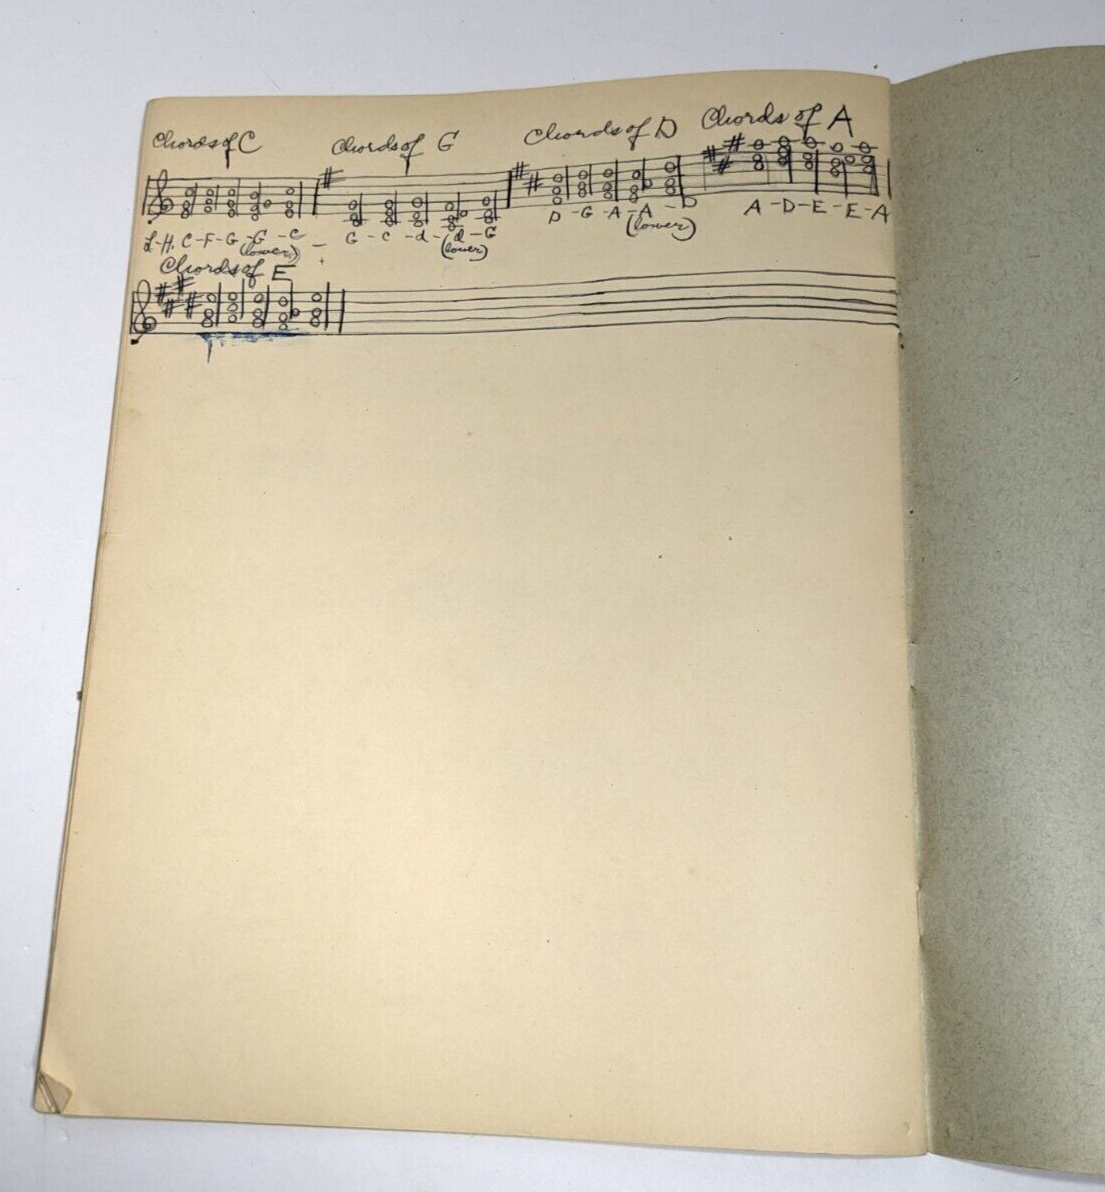 Chords of C   Chords of G   Chords of D   Chords of A
L-H. C-F-G-G-C - G-C-d-d-G   D-G-A-A-D   A-D-E-E-A
(lower)   (lower)   (lower)
Chords of E